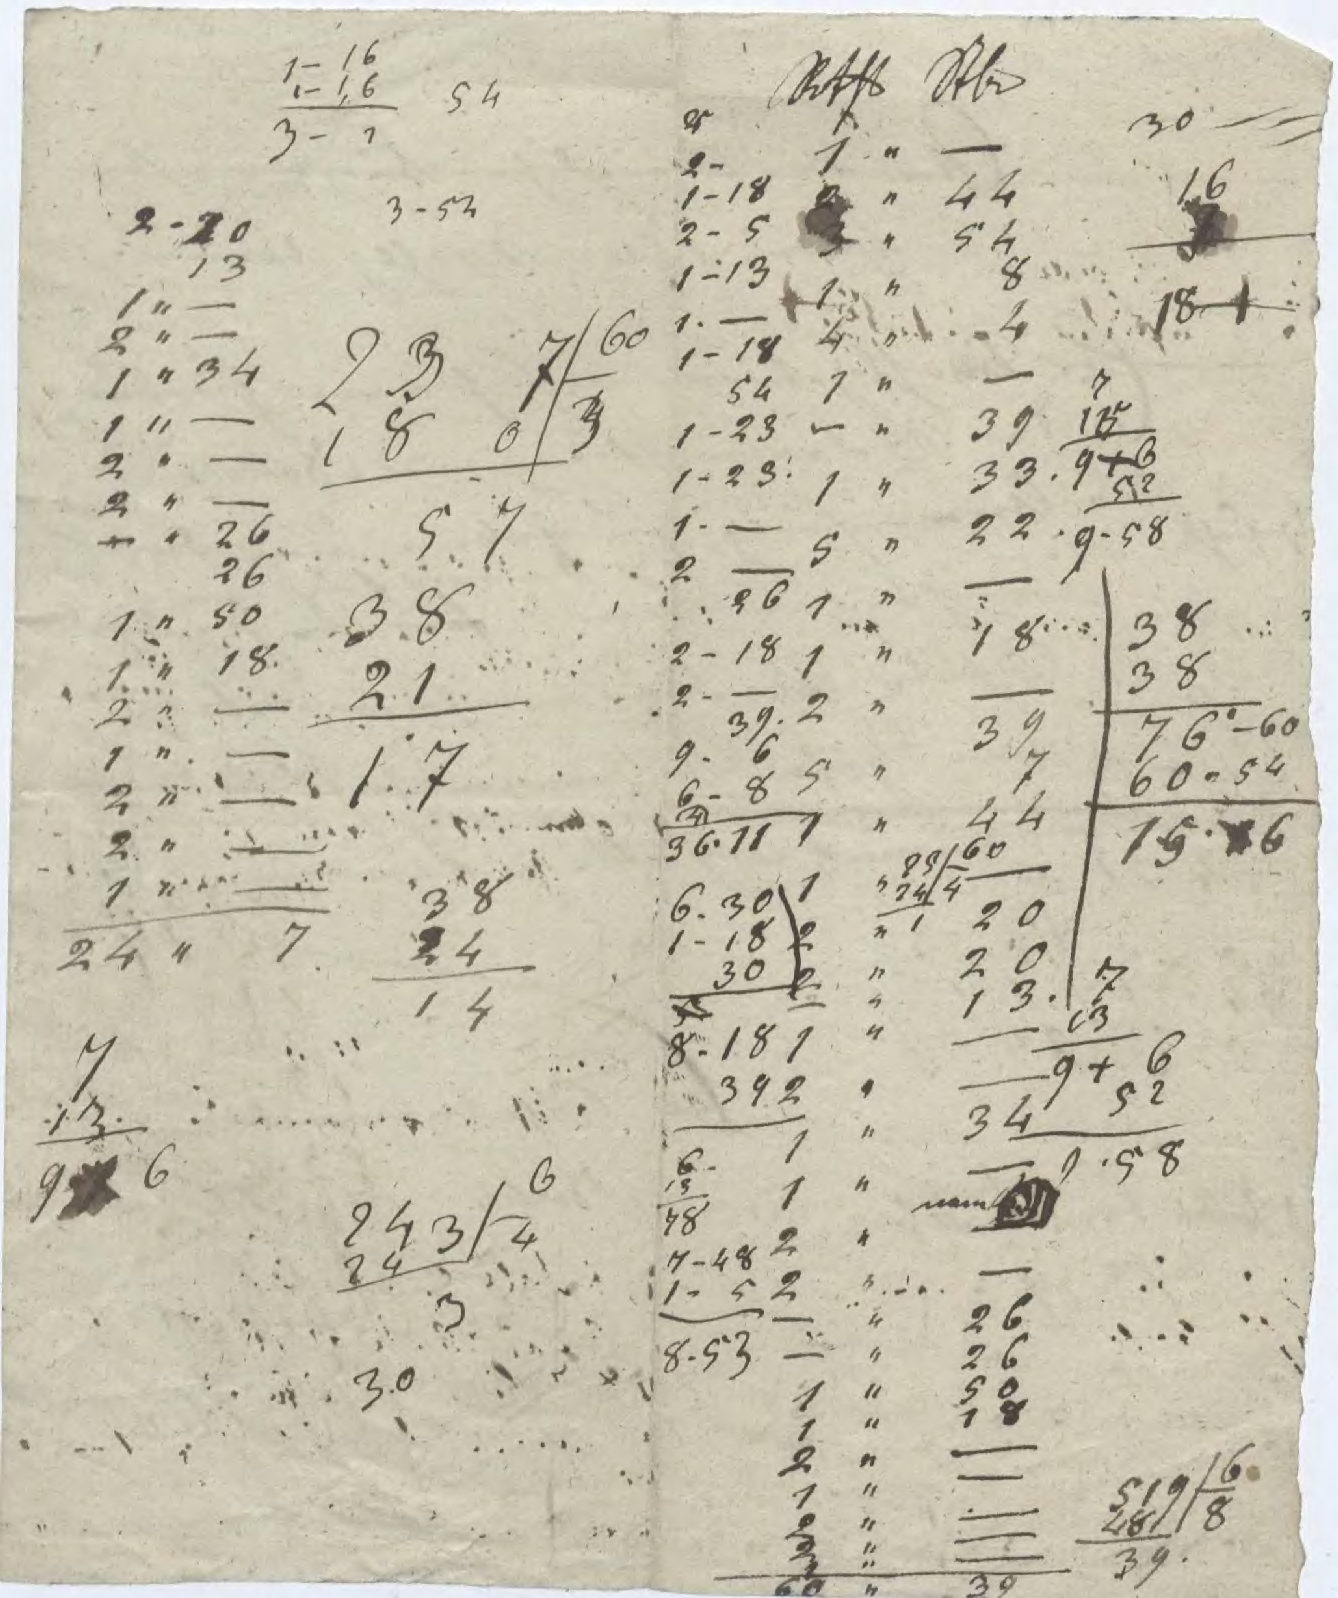 1- 16
1- 16
3- 2
54
3-54
2-20
13
1 " —
2 " —
1 " 34
1 " —
2 " —
2 " —
— " 26
26
1 " 50
1 " 18.
2 " —
1 " —
2 " —
2 " —
1 " —
24 " 7.
237/60
180/3
57
38
21
17
38
24
14
7
13.
9 6
243/6
24 4
3
30
2-
1-18
2-5
1-13
1. —
1-18
54
1-23
1-23.
1. —
2 —
26
2-18
2- —
39.
9. 6
6-8
36.11
6.30
1-18
30
8.18
39
6-
13
78
7-48
1-5
8-53
1 " —
2 " 44
3 " 54
1 " 8
4 " 4
1 " —
— " 39
1 " 33.
5 " 22.
1 " —
1 " 18
2 " —
" 39
5 " 7
1 " 44
1 " —
2 " 20
2 " 20
— " 13.
1 " —
2 " —
1 " 34
1 " —
2 "
2 " —
— " 26
— " 26
1 " 50
1 " 18
2 " —
1 " —
2 " —
2 " —
60 " 39
25/60
24/4
1
30
16
18 1
7
13
9+6
52
9-58
38
38
76-60
60-54
15. 16
7
13
9+ 6
52
9.58
519/6
48 8
39.